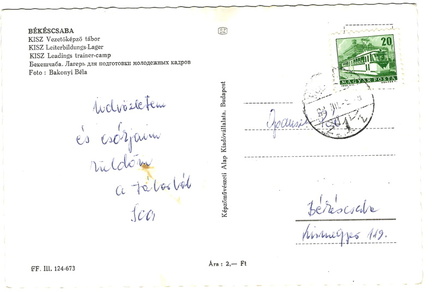 BÉKÉSCSABA
KISZ Vezetőképző tábor
KISZ Leiterbildungs Lager
KISZ Leadings trainer-camp
Бекешчаба. Лагерь для подготовки молодежных кадров
Foto : Bakonyi Béla
Üdvözletem
és csókjaim
küldöm
a táborból
FF. III. 124-673
Ára : 2,— Ft
Képzőművészeti Alap Kiadóvállalata, Budapest
20
MAGYAR POSTA
Békéscsaba